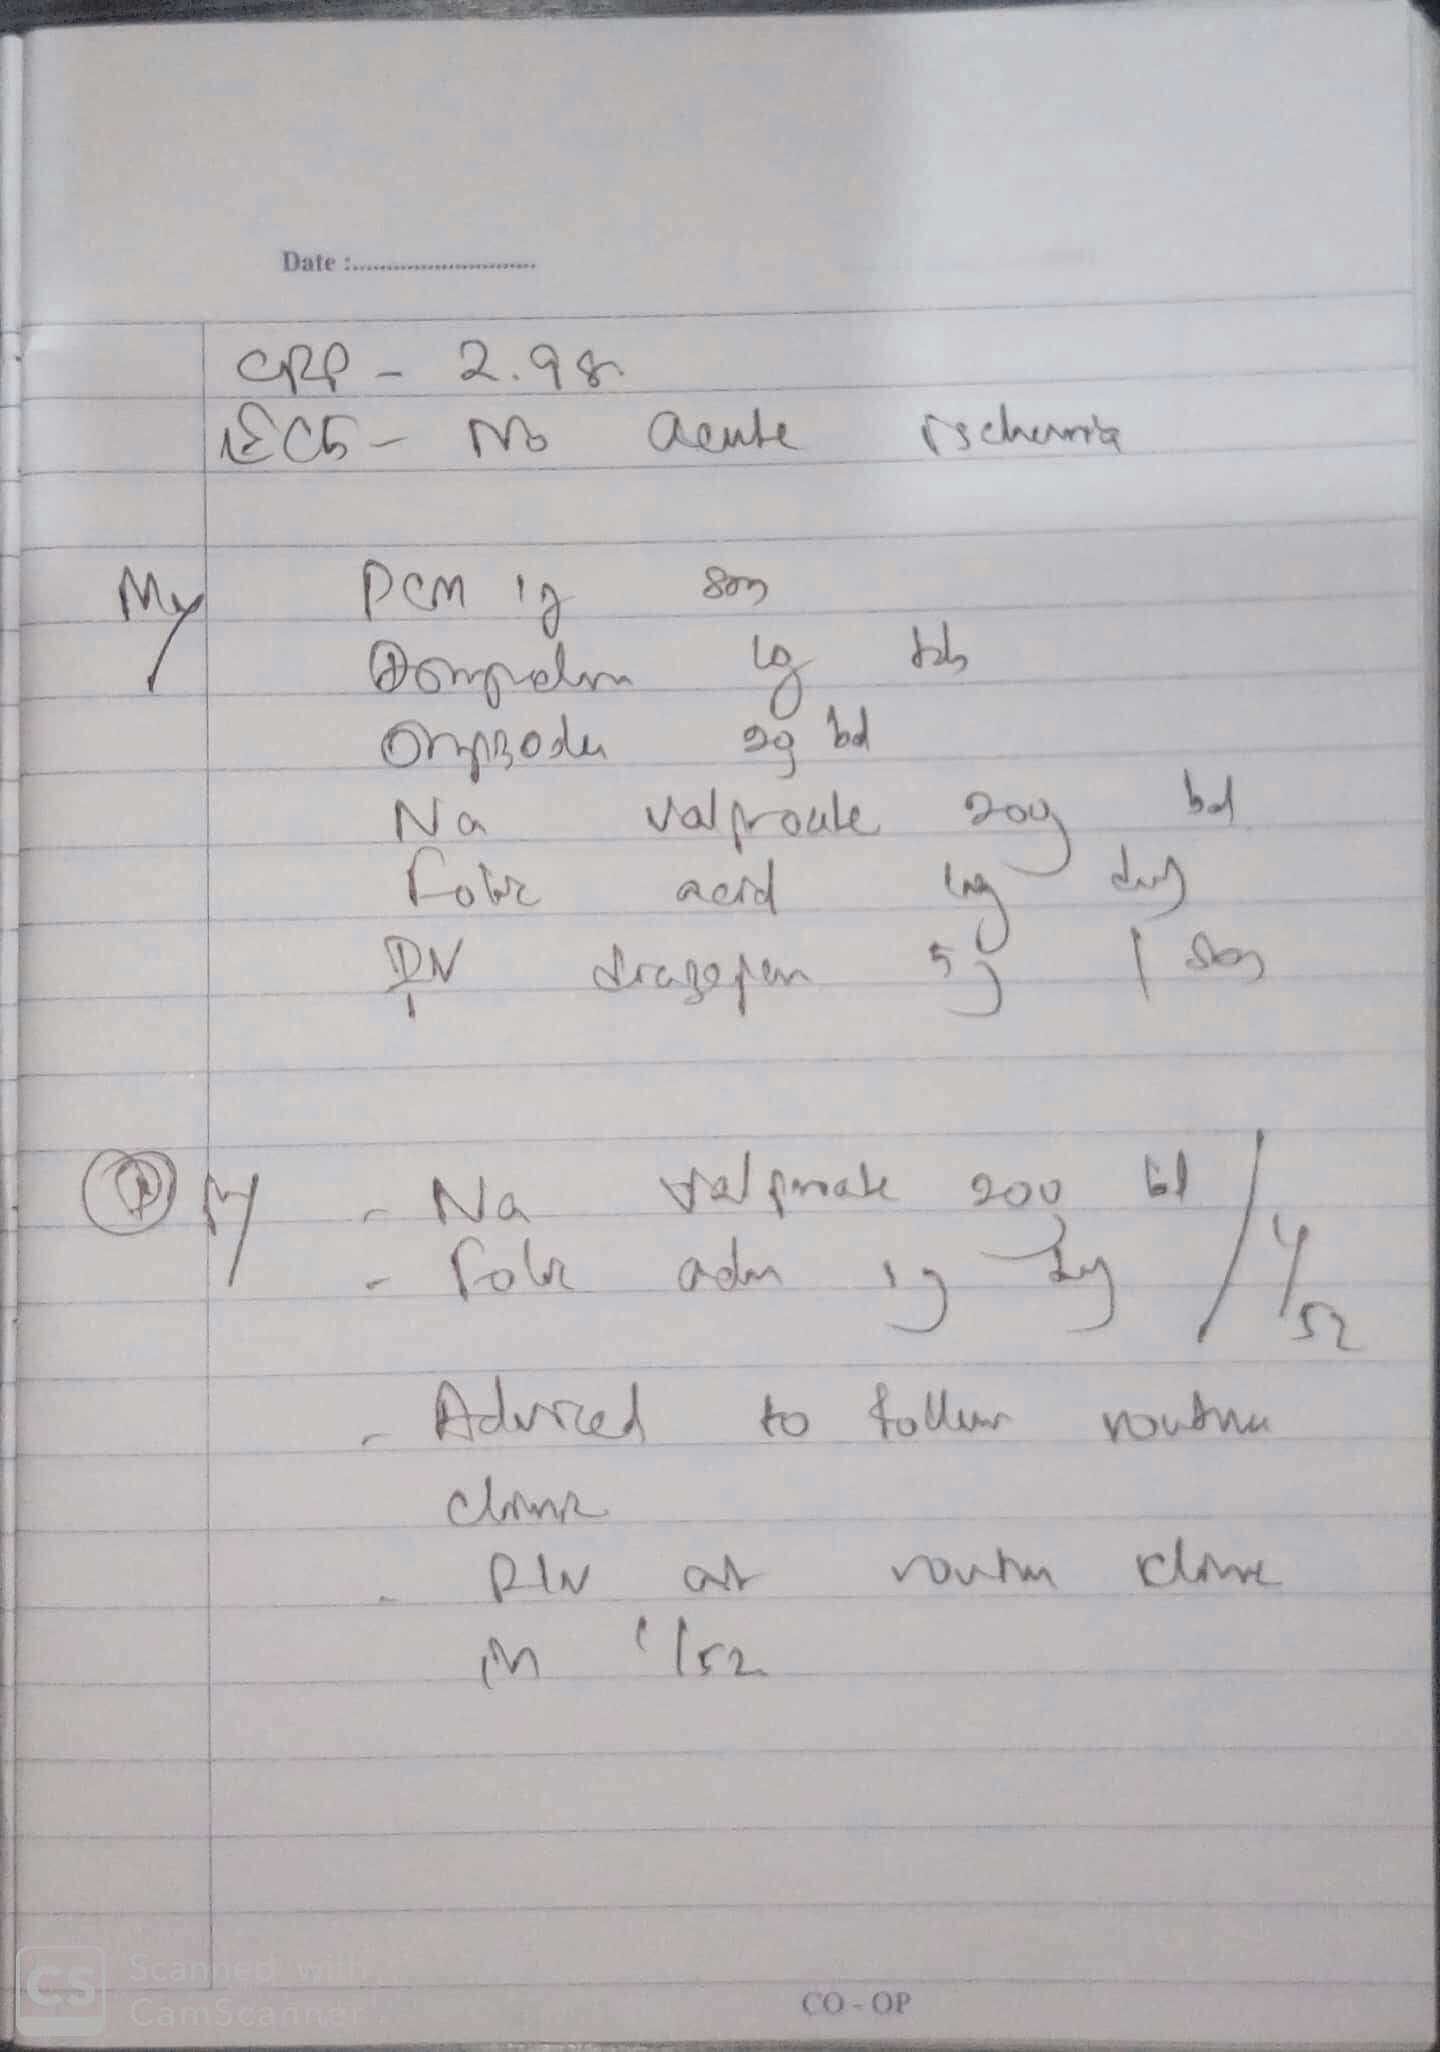 Date :..............................
CRP - 2.98
ECG - No acute ischemia
Mx PCM 1g sos
Domperidon tds
Omeprazole bd
Na valproate 200mg bd
Folic acid 1mg daily
IV diazepam 5mg / sos
Na valproate 200mg bd
- Folic acid 1mg daily / 1/52
- Adviced to follow routine
clinic
- R/V at routine clinic
in 1/52
CO - OP
CS Scanned with
CamScanner